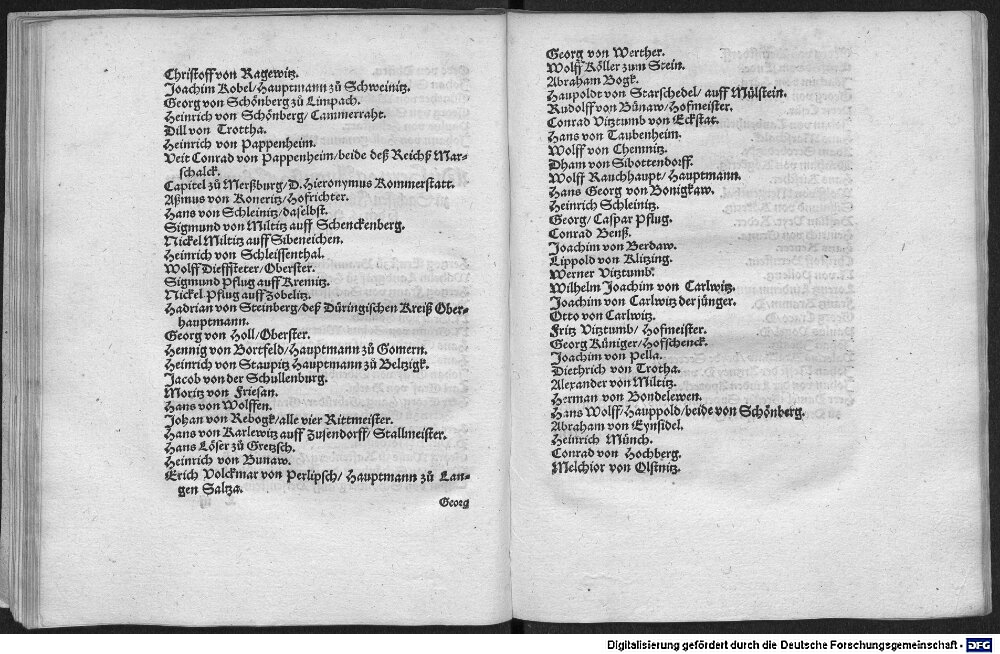 Christoff von Ragewitz.
Joachim Kobel/Hauptmann zů Schweinitz.
Georg von Schönberg zů Limpach.
Heinrich von Schönberg/Cammerraht.
Dill von Trottha.
Heinrich von Pappenheim.
Veit Conrad von Pappenheim/beide deß Reichß Mar-
schalck.
Capitel zů Merßburg/D. Hieronymus Kommerstatt.
Aßmus von Koneritz/Hofrichter.
Hans von Schleinitz/daselbst.
Sigmund von Miltitz auff Schenckenberg.
Nickel Miltitz auff Sibeneichen.
Heinrich von Schleissenthal.
Wolff Dieffsteter/Oberster.
Sigmund Pflug auff Kremitz.
Nickel Pflug auff Zobelitz.
Hadrian von Steinberg/deß Düringischen Kreiß Ober-
hauptmann.
Georg von Holl/Oberster.
Hennig von Bortfeld/Hauptmann zů Gomern.
Heinrich von Staupitz Hauptmann zů Beltzigk.
Jacob von der Schullenburg.
Moritz von Friesan.
Hans von Wolffen.
Johan von Rebogk/alle vier Rittmeister.
Hans von Karlewitz auff Zusendorff/Stallmeister.
Hans Löser zů Gretzsch.
Heinrich von Bunaw.
Erich Volckmar von Perlipsch/Hauptmann zů Lan-
gen Saltza.
Georg
Georg von Werther.
Wolff Köller zum Stein.
Abraham Bogk.
Haupoldt von Starschedel/auff Mülstein.
Rudolff von Bünaw/Hofmeister.
Conrad Vitztumb von Eckstat.
Hans von Taubenheim.
Wolff von Chemnitz.
Dham von Sibottendorff.
Wolff Rauchhaupt/Hauptmann.
Hans Georg von Bonigkaw.
Heinrich Schleinitz.
Georg/Caspar Pflug.
Conrad Benß.
Joachim von Berdaw.
Lippold von Klitzing.
Werner Vitztumb.
Wilhelm Joachim von Carlwitz.
Joachim von Carlwitz der jünger.
Otto von Carlwitz.
Fritz Vitztumb/Hofmeister.
Georg Küniger/Hoffschenck.
Joachim von Pella.
Diethrich von Trotha.
Alexander von Miltitz.
Herman von Bondelewen.
Hans Wolff/Hauppold/beide von Schönberg.
Abraham von Eynsidel.
Heinrich Münch.
Conrad von Hochberg.
Melchior von Olsnitz.
Digitalisierung gefördert durch die Deutsche Forschungsgemeinschaft - DFG